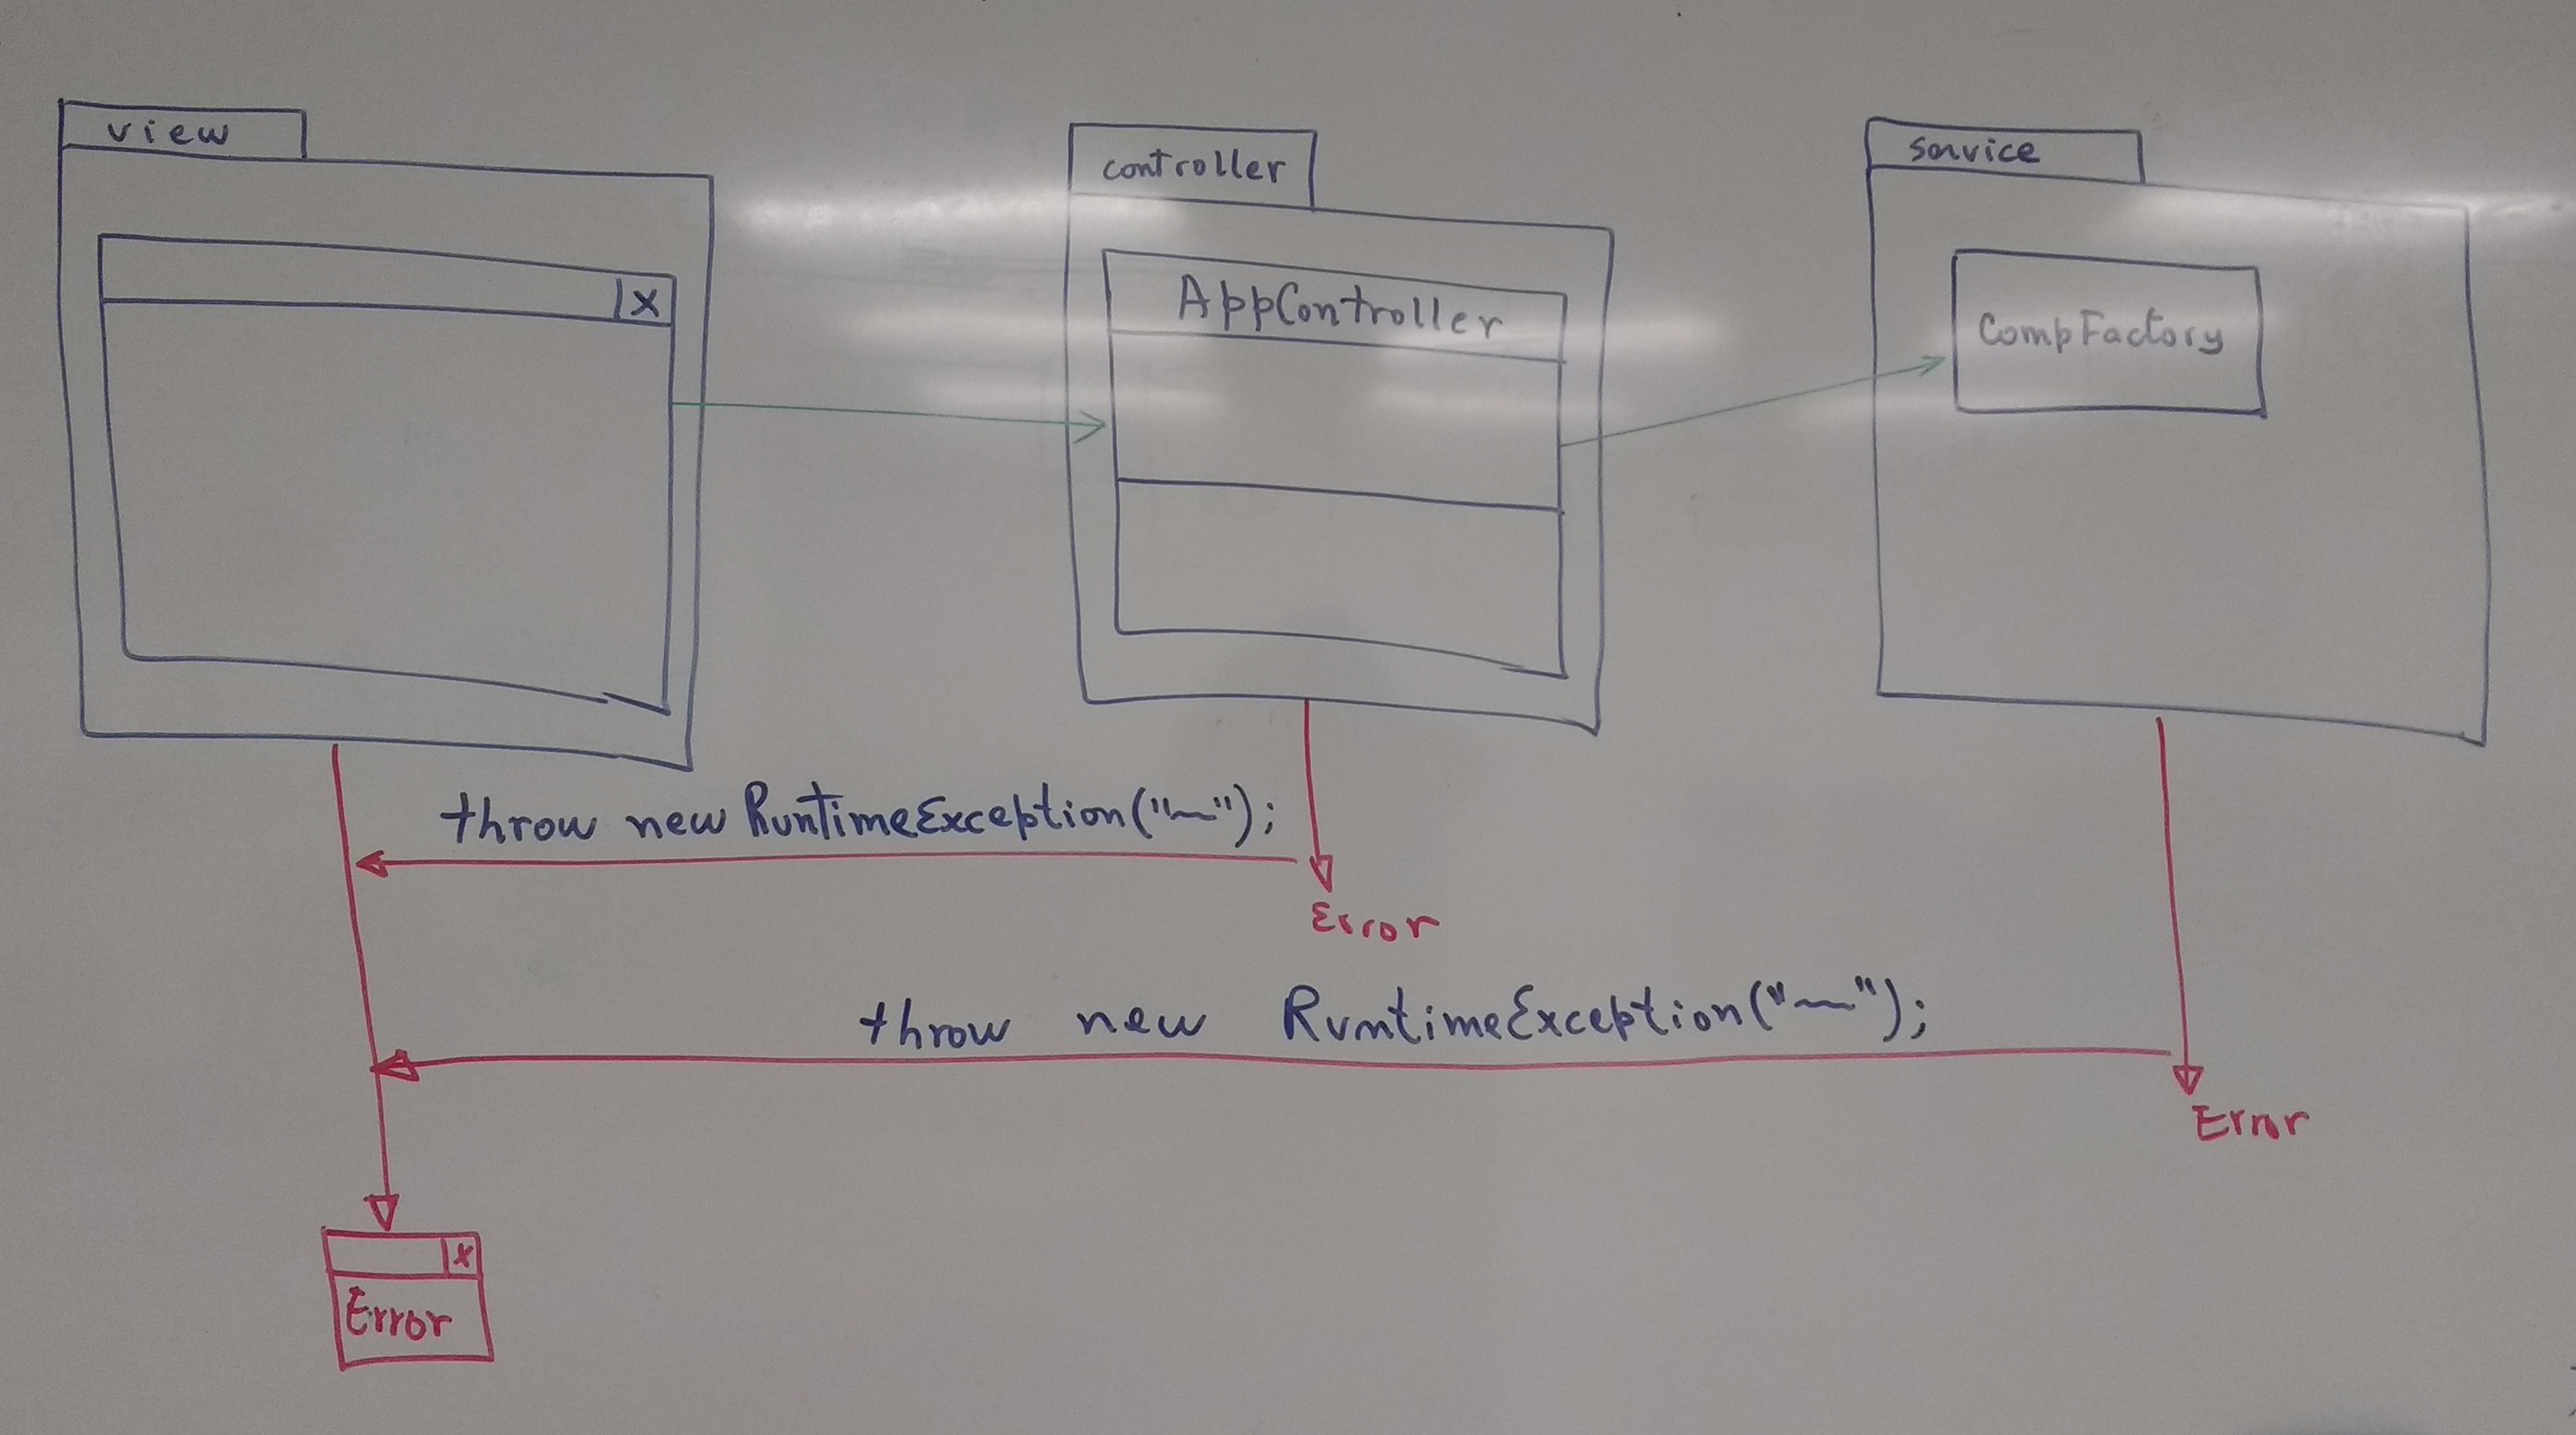 view
controller
service
x
AppController
CompFactory
throw new RuntimeException("~");
Error
throw new RuntimeException("~");
Error
x
Error